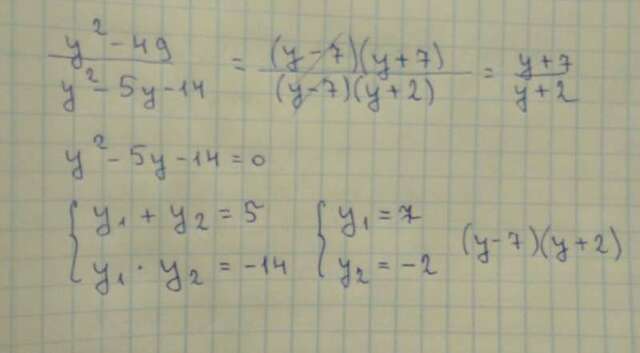 (y² - 49)/(y² - 5y - 14) = ((y - 7)(y + 7))/((y - 7)(y + 2)) = (y + 7)/(y + 2)
y² - 5y - 14 = 0
{ y₁ + y₂ = 5 { y₁ = 7 (y - 7)(y + 2)
y₁ · y₂ = -14 y₂ = -2